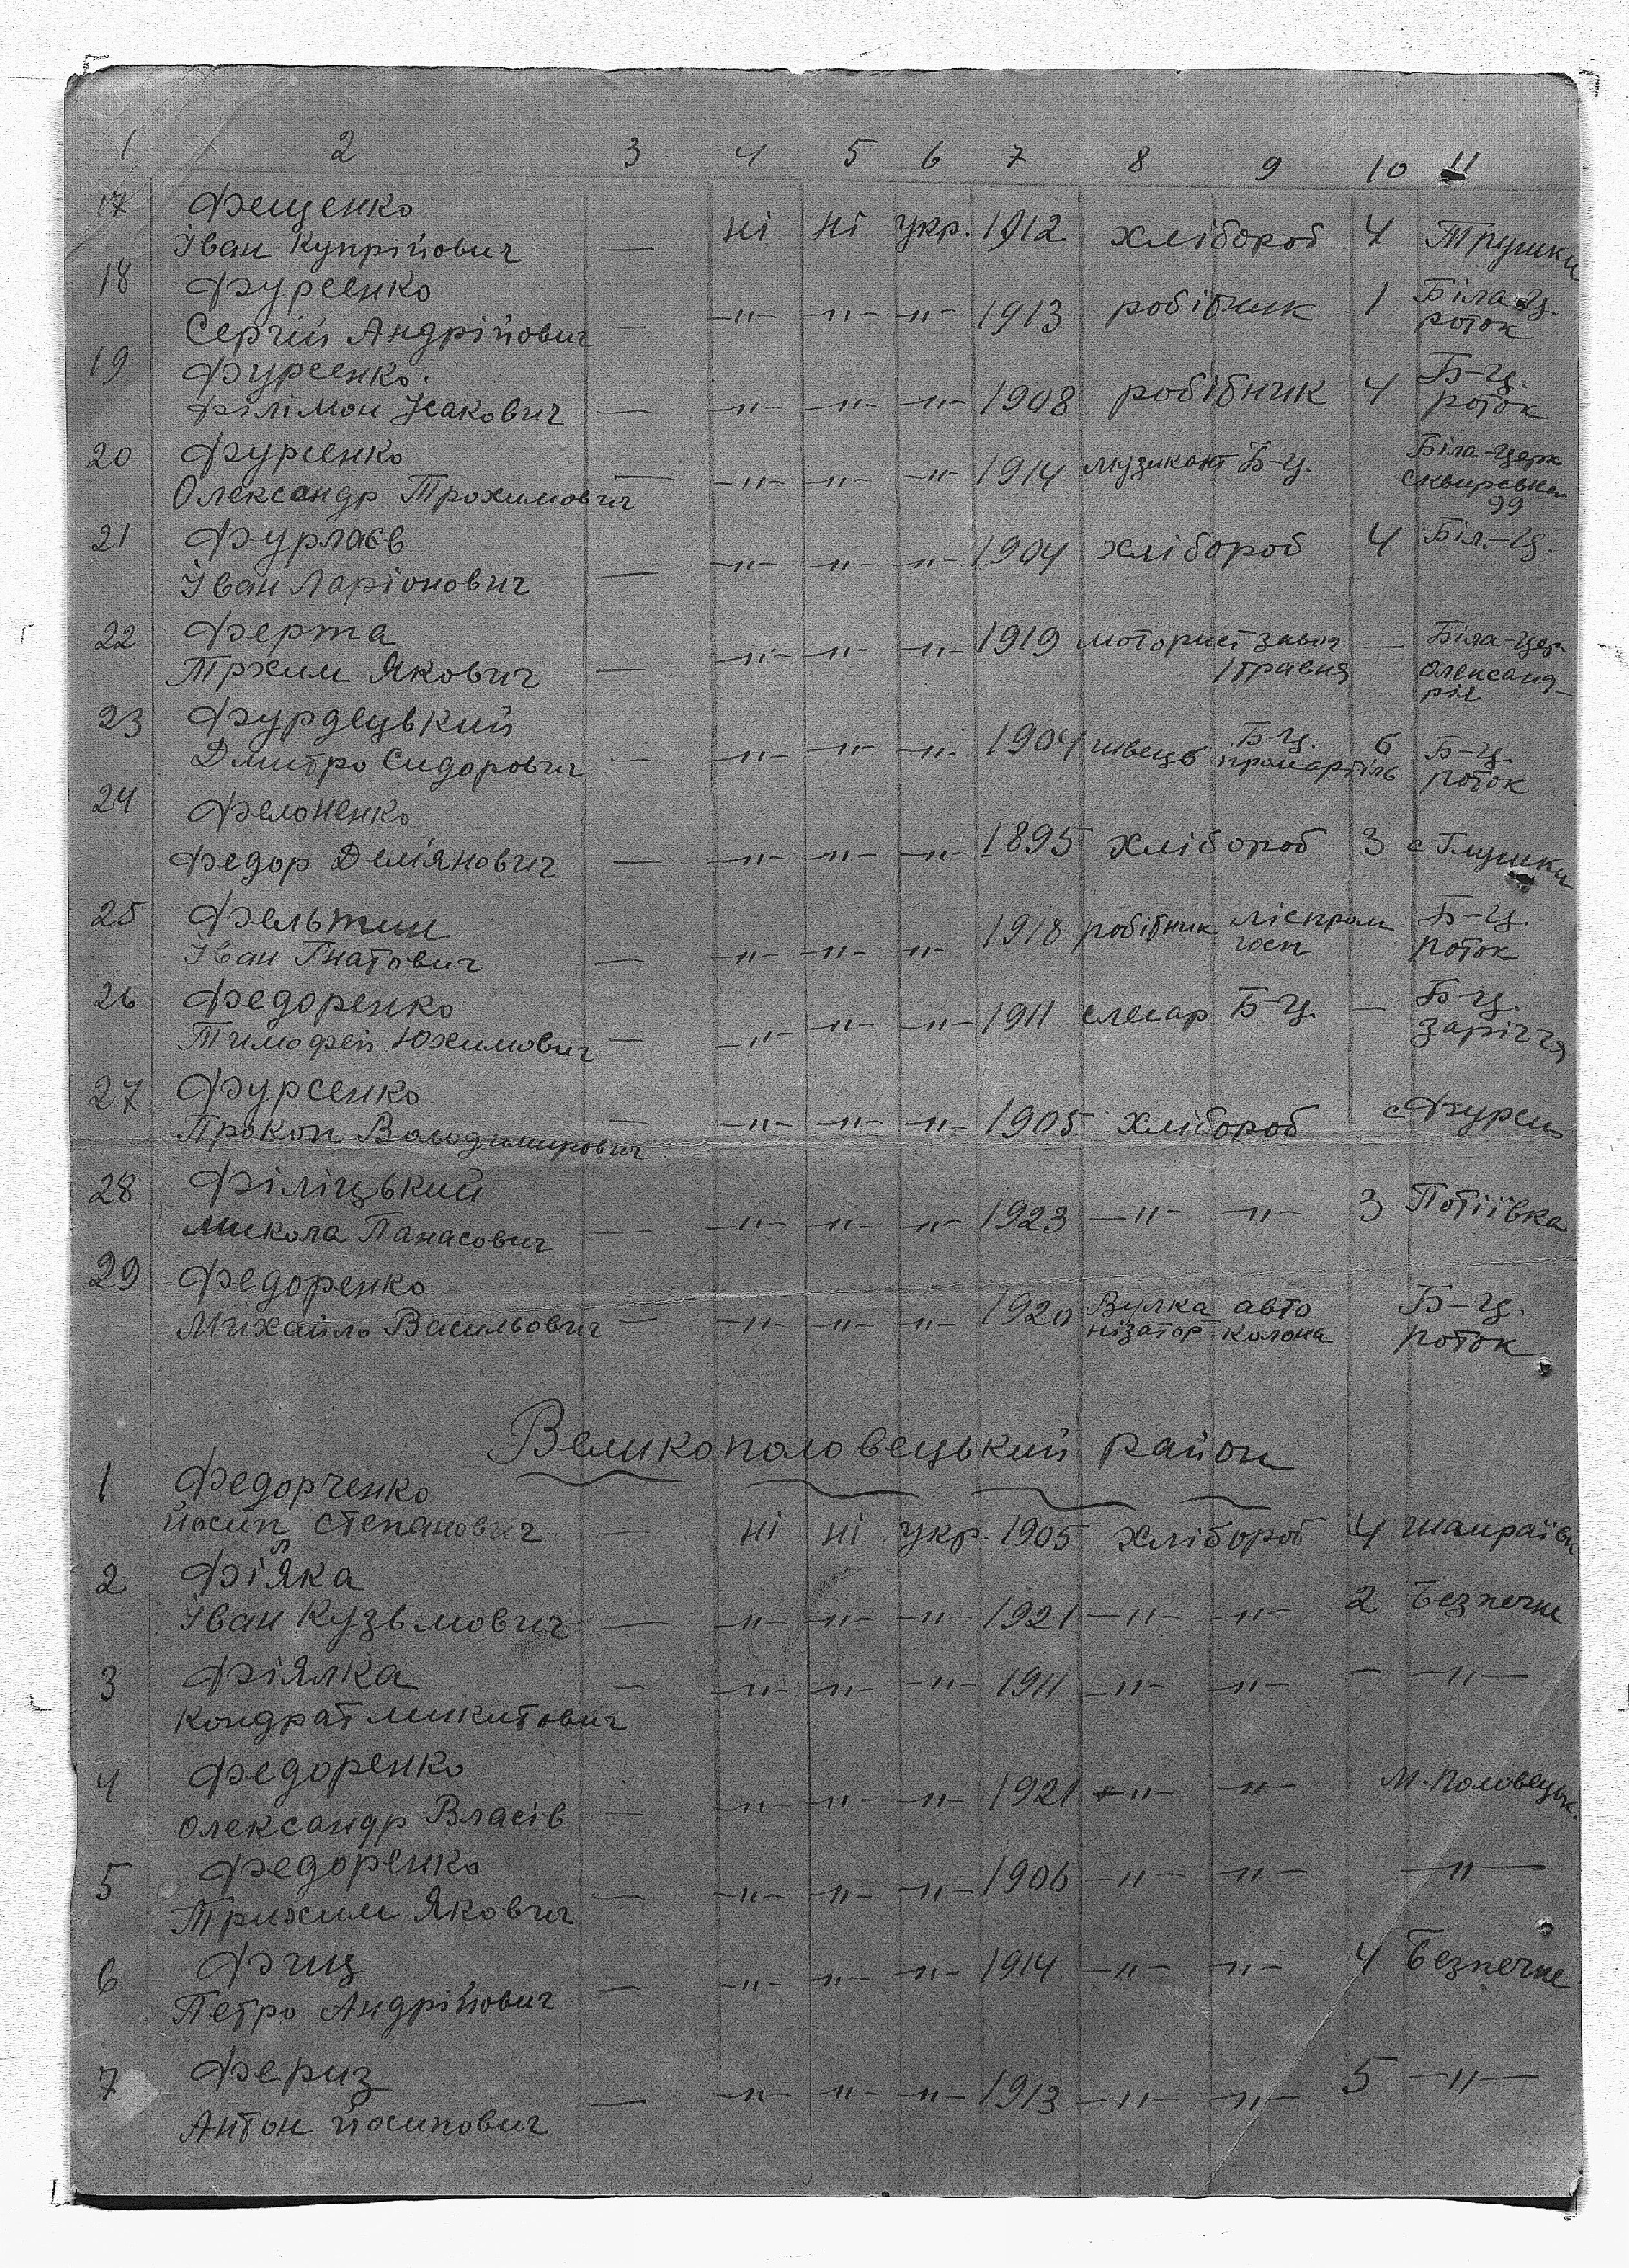 1 2 3 4 5 6 7 8 9 10 11
17 Фещенко
Іван Купрійович — ні ні укр. 1912 хлібороб 4 Трушки
18 Фурсенко
Сергій Андрійович — —"— —"— —"— 1913 робітник 1 Біла-Ц. роток
19 Фурсенко.
Філімон Ісакович — —"— —"— —"— 1908 робітник 4 Б-Ц. роток
20 Фурсенко
Олександр Трохимович — —"— —"— —"— 1914 музикант Б-Ц. Біла-Церк Сквирська 99
21 Фурлаєв
Іван Ларіонович — —"— —"— —"— 1904 хлібороб 4 Біл.-Ц.
22 Ферта
Трхим Якович — —"— —"— —"— 1919 моторист завод 1 травня — Біла-Цер. Олександ-рія
23 Фурдецький
Дмитро Сидорович — —"— —"— —"— 1904 швець Б-Ц. промартіль 6 Б-Ц. роток
24 Фелоненко
Федор Дем'янович — —"— —"— —"— 1895 хлібороб 3 с Глушки
25 Фельтин
Іван Гнатович — —"— —"— —"— 1918 робітник ліспром госп Б-Ц. роток
26 Федоренко
Тимофей Юхимович — —"— —"— —"— 1911 слесар Б-Ц. — Б-Ц. заріччя
27 Фурсенко
Прокоп Володимирович — —"— —"— —"— 1905 хлібороб с Фурси
28 Філіцький
Микола Панасович — —"— —"— —"— 1923 —"— —"— 3 Потіївка
29 Федоренко
Михайло Васильович — —"— —"— —"— 1920 Вулка нізатор авто колона Б-Ц. роток
Великополовецький район
1 Федорченко
Йосип Степанович — ні ні укр. 1905 хлібороб 4 Шамраївк
2 Фіялка
Іван Кузьмович — —"— —"— —"— 1921 —"— —"— 2 Безпечне
3 Фіялка
Кондрат Микитович — —"— —"— —"— 1911 —"— —"— — —"—
4 Федоренко
Олександр Власів — —"— —"— —"— 1921 —"— —"— М. Половецьк.
5 Федоренко
Трихим Якович — —"— —"— —"— 1906 —"— —"— —"—
6 Фищ
Петро Андрійович — —"— —"— —"— 1914 —"— —"— 4 Безпечне
7 Фериз
Антон Йосипович — —"— —"— —"— 1913 —"— —"— 5 —"—